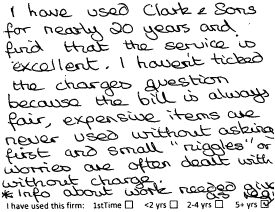 I have used Clark & Sons
for nearly 20 years and
find that the service is
excellent. I haven't ticked
the charges question
because the bill is always
fair, expensive items are
never used without asking
first and small "niggles" or
worries are often dealt with
without charge.
* Info about work needed
I have used this firm: 1stTime ☐ <2 yrs ☐ 2-4 yrs ☐ 5+ yrs ☑